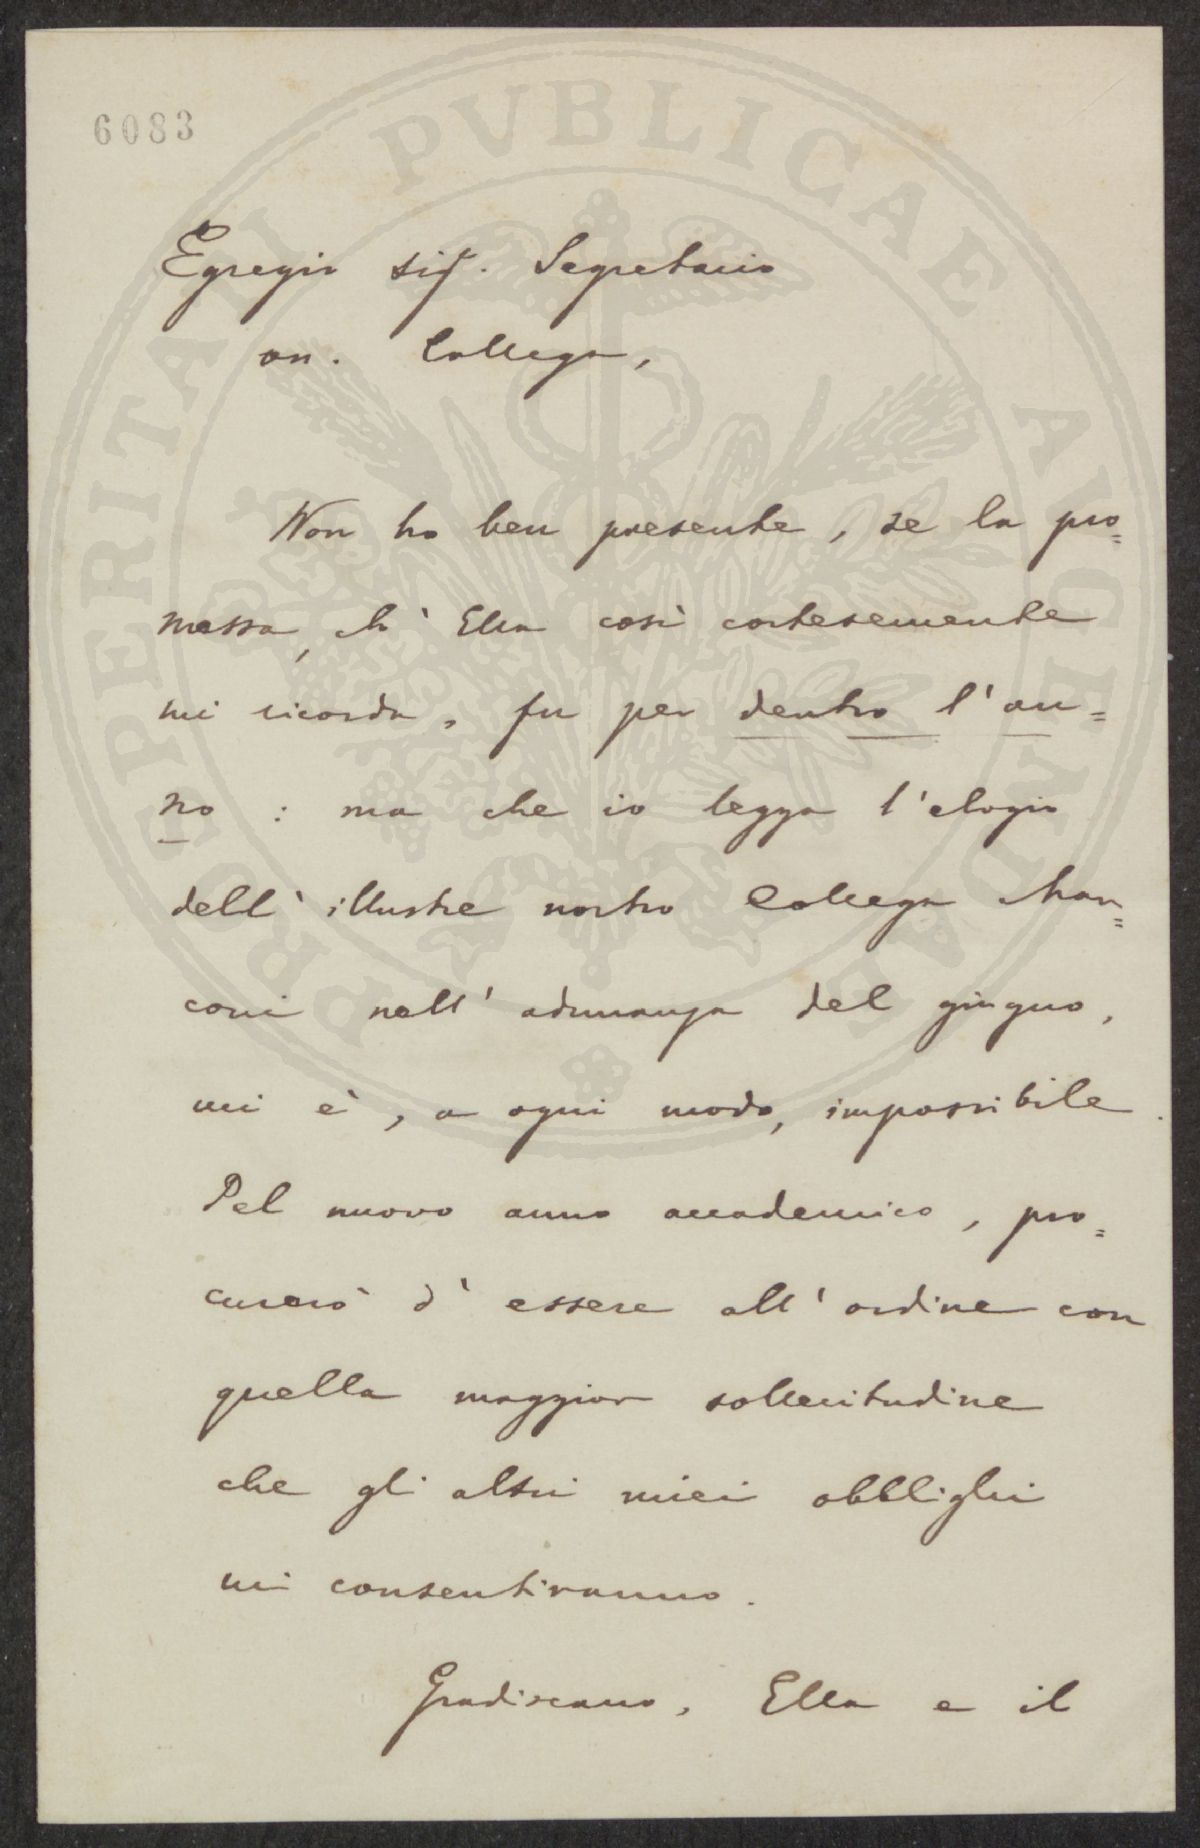 6083
PROSPERITATI PUBLICAE AUGENDAE
Egregio sig. Segretario
on. Collega,
Non ho ben presente, se la pro=
messa, ch' Ella così cortesemente
mi ricorda, fu per dentro l'an=
no: ma che io legga l'elogio
dell' illustre nostro Collega Mar=
coni nell' adunanza del giugno,
mi è, a ogni modo, impossibile.
Pel nuovo anno accademico, pro=
curerò d' essere all' ordine con
quella maggior sollecitudine
che gli altri miei obblighi
mi consentiranno.
Gradiscano, Ella e il